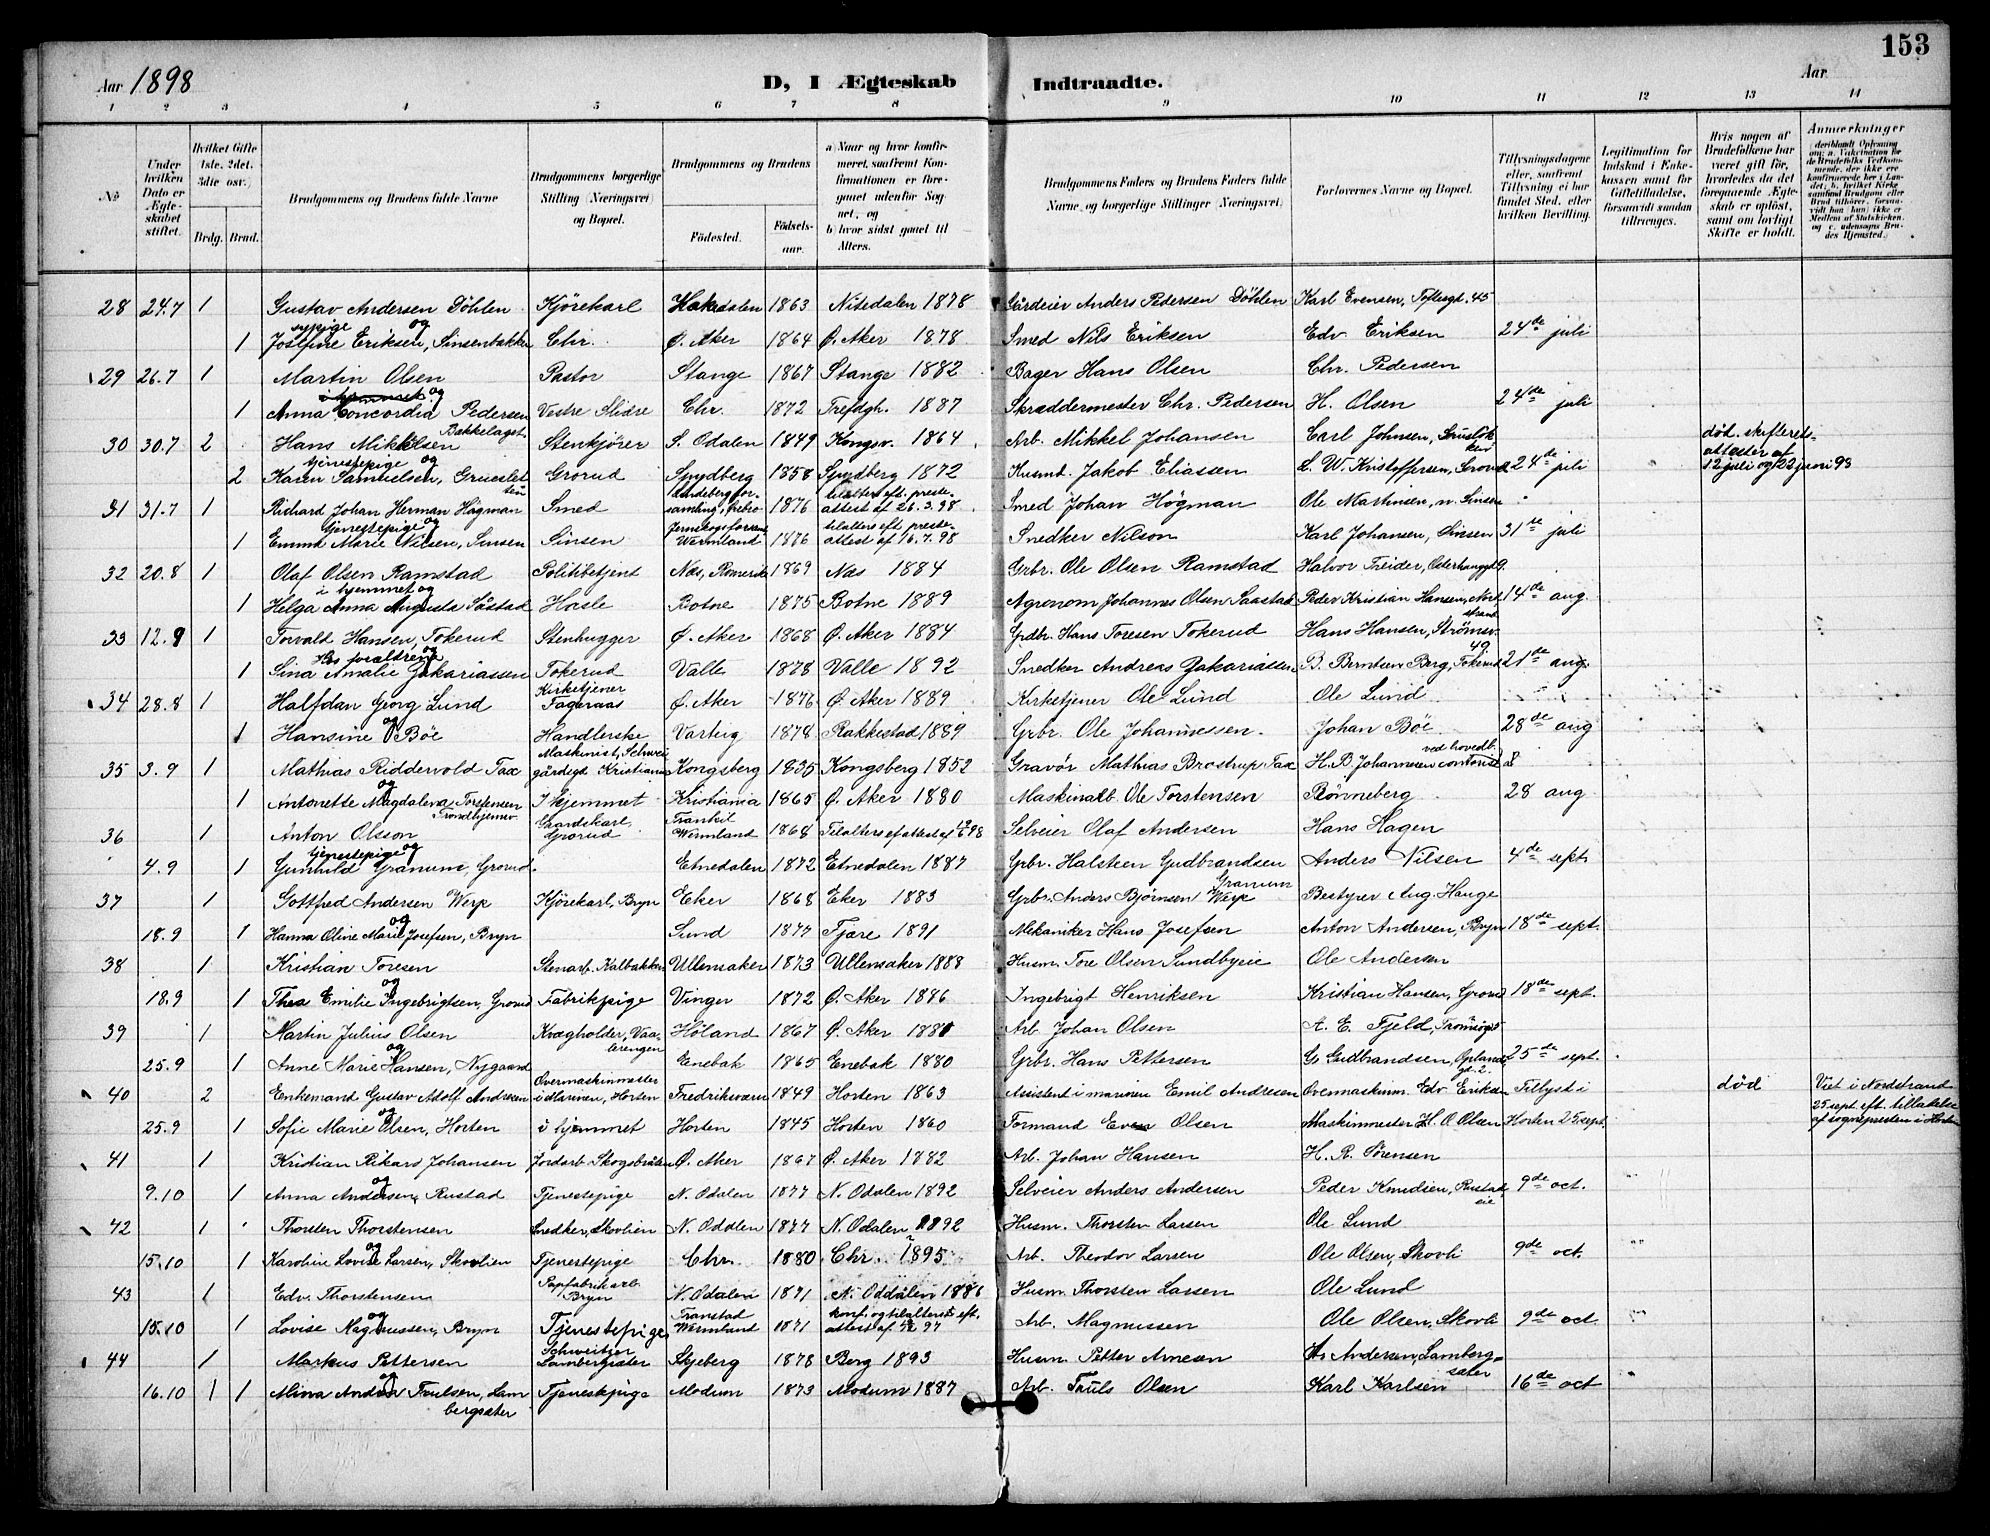 153
Aar 1898
D, I Ægteskab Indtraadte.
Aar
1 2 3 4 5 6 7 8 9 10 11 12 13 14
No
Under hvilken Dato er Ægteskabet stiftet.
Hvilket Gifte (1ste, 2det, 3die osv.)
Brdg. Brud.
Brudgommens og Brudens fulde Navne
Brudgommens borgerlige Stilling (Næringsvei) og Bopæl.
Brudgommens og Brudens
Fødested. Fødselsaar.
a) Naar og hvor konfirmeret, saafremt Konfirmationen er foregaaet udenfor Sognet, og b) hvor sidst gaaet til Alters.
Brudgommens Faders og Brudens Faders fulde Navne og borgerlige Stillinger (Næringsvei)
Forlovernes Navne og Bopæl.
Tillysningsdagene eller, saafremt Tillysning ei har fundet Sted, efter hvilken Bevilling.
Legitimation for Indskud i Enkekassen samt for Giftetilladelse, forsaavidt saadan tiltrænges.
Hvis nogen af Brudefolkene har været gift før, hvorledes da det foregaaende Ægteskab er opløst, samt om lovligt Skifte er holdt.
Anmerkninger
28 24.7 1 Gustav Andersen Döhlen Kjörekarl Hakedalen 1863 Nitedalen 1878 Gårdeier Anders Pedersen Döhlen Karl Evensen, Toftesgd. 45
sypige og
1 Josefine Eriksen, Sinsenbakken Chr. Ø. Aker 1864 Ø. Aker 1878 Smed Nils Eriksen Edv Eriksen 24de juli
29 26.7 1 Martin Olsen Pastor Stange 1867 Stange 1882 Bager Hans Olsen Chr. Pedersen
i hjemmet og
1 Anna Concordia Pedersen Vestre Slidre Chr. 1872 Trefdgh. 1887 Skræddermester Chr. Pedersen H. Olsen 24de juli
Bækkelaget
30 30.7 2 Hans Mikkelsen Stenkjører S. Odalen 1849 Kongsv. 1864 Arb. Mikkel Johansen Carl Johnsen, død. skifterets-
tjenestepige og
2 Karen Samuelsen, Gruesletten Grorud Spydberg 1858 Spydberg 1872 Husmd. Jakob Eliassen L. W. Kristoffersen, Grorud 24de juli attester af 12 juli og 22 juni 93
31 31.7 1 Richard Johan Herman Högman Smed 1876 tilalters eft. presteattest af 26.3.98 Smed Johan Högman Ole Martinsen, n. Sinsen
tjenestepige og
1 Emma Marie Nilsen, Sinsen Sinsen Wermland 1876 tilalters eft presteattest af 16.7.98 Snedker Nilson Karl Johansen, Sinsen 31te juli
32 20.8 1 Olaf Olsen Ramstad Politibetjent Næs, Romerike 1869 Næs 1884 Grbr. Ole Olsen Ramstad Halvor Treider, Osterhausgd 9.
i hjemmet og
1 Helga Anna Augusta Såstad Hasle Botne 1875 Botne 1889 Agronom Johannes Olsen Saastad Peder Kristian Hansen, Nordstrand 14de aug.
33 12.9 1 Torvald Hansen, Tokerud Stenhugger Ø. Aker 1868 Ø. Aker 1884 Grdbr. Hans Toresen Tokerud Hans Hansen, Strömsv. 49
Hos forældrene og
1 Sina Amalie Zakariassen Tokerud Valle 1878 Valle 1892 Snedker Andreas Zakariassen B. Berntsen Berg, Tokerud 21de aug.
34 28.8 1 Halfdan Georg Lund Kirketjener Fageraas Ø. Aker 1876 Ø. Aker 1889 Kirketjener Ole Lund Ole Lund
og
1 Hansine Bøe Handlerske Varteig 1878 Rakkestad 1889 Grbr. Ole Johannessen. Johan Bøe 28de aug
35 3.9 1 Mathias Riddervold Fax Maskinist, Schweigårdsgd Kristiania Kongsberg 1835 Kongsberg 1852 Gravør Mathias Brostrup Fax H. B. Johannesen contorist ved hovedb.
og
1 Antonette Magdalena Torstensen Trondhjemsv. I hjemmet Kristiania 1865 Ø. Aker 1880 Maskinarb. Ole Torstensen Rønneberg 28 aug
36 1 Anton Olsson Gaardskarl, Grorud Wermland 1868 Tilalters ef. attest af 98 Selveier Olaf Andersen Hans Hagen
tjenestepige og
4.9 1 Gunhild Granum, Grorud. Etnedalen 1872 Etnedalen 1887 Grbr. Halsten Gudbrandsen Granum Anders Nilsen 4de sept.
37 1 Gottfred Andersen Werp Kjörekarl, Bryn Eker 1868 Eker 1883 Grbr. Anders Bjørnsen Werp Bestyrer Aug. Hauge
og
18.9 1 Hanna Oline Marie Josefsen, Bryn Lund 1877 Fjære 1891 Mekaniker Hans Josefsen Anton Andersen, Bryn 18de sept.
38 1 Kristian Toresen Stenarb. Kalbakken Ullensaker 1873 Ullensaker 1888 Husm. Tore Olsen Sundbyeie Ole Andersen
og
18.9 1 Thea Emilie Ingebrigtsen, Grorud Fabrikpige Vinger 1872 Ø. Aker 1886 Ingebrigt Henriksen Kristian Hansen, Grorud 18de sept.
39 1 Martin Julius Olsen Kvægholder, Vaalerengen Høland 1867 Ø. Aker 1881 Arb Johan Olsen A. E. Fjeld, Tromsøgd 5
og
25.9 1 Anne Marie Hansen, Nygaard Enebak 1865 Enebak 1880 Grbr. Hans Pettersen G. Gudbrandsen, Oplandsgd. 2. 25de sept.
40 2 Enkemand Gustav Adolf Andresen Overmaskinmester i Marinen, Horten Fredriksværn 1849 Horten 1863 Assistent i marinen Emil Andresen Overmaskinm. Edv Eriksen Tillyst i død Viet i Nordstrand
og
25.9 1 Sofie Marie Olsen, Horten i hjemmet Horten 1845 Horten 1860 Formand Even Olsen Maskinmester H. O. Olsen Horten 25 sept. 25 sept. eft. tilladelse af sognepresten i Horten
41 1 Kristian Rikard Johansen Jordarb. Skogsbråten Ø. Aker 1867 Ø. Aker 1882 Arb. Johan Hansen H. R. Sørensen
og
9.10 1 Anna Andersen, Rustad Tjenestepige N. Odalen 1877 N. Odalen 1892 Selveier Anders Andersen Peder Knudsen, Rustadeie 9de oct.
42 1 Thorsten Thorstensen Snedker, Skovlien N. Odalen 1877 N. Odalen 1892 Husm. Thorsten Larsen Ole Lund
og
15.10 1 Karoline Lovise Larsen, Skovlien Tjenestepige Chr. 1880 Chr. 1895 Arb. Theodor Larsen Ole Olsen, Skovli 9de oct.
43 1 Edv. Thorstensen Papfabrikarb. Bryn N. Odalen 1871 N. Oddalen 1886 Husm. Thorsten Larsen Ole Lund
og
15.10 1 Lovise Magnussen, Bryn Tjenestepige Wermland 1871 konf. og tilalters eft. attest af 97 Arb. Magnussen Ole Olsen, Skovli 9de oct
44 1 Markus Pettersen Schweitzer Lambergsæter Skjeberg 1878 Berg 1893 Husm. Petter Arnesen A. Andersen, Lambergsæter
og
16.10 1 1 Mina Andrea Trulsen, Lambergsæter Tjenestepige Modum 1873 Modum 1887 Arb. Truls Olsen Karl Karlsen 16de oct